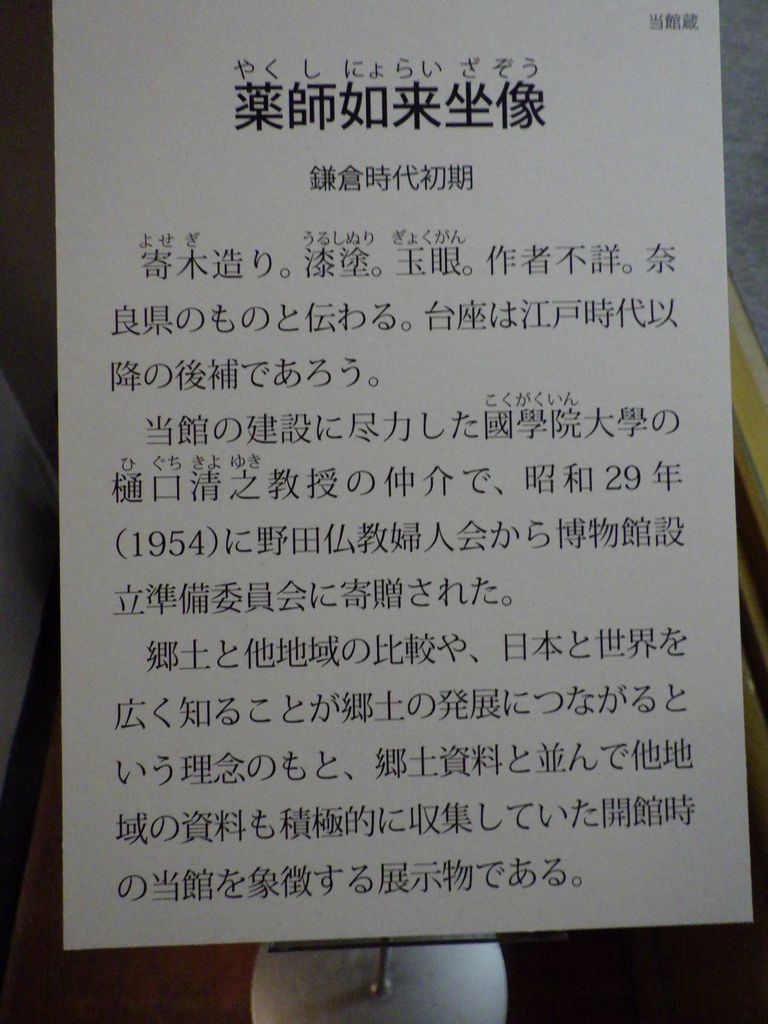 当館蔵
やくしにょらいざぞう
薬師如来坐像
鎌倉時代初期
よせぎ うるしぬり ぎょくがん
寄木造り。漆塗。玉眼。作者不詳。奈
良県のものと伝わる。台座は江戸時代以
降の後補であろう。
こくがくいん
当館の建設に尽力した國學院大學の
ひぐちきよゆき
樋口清之教授の仲介で、昭和29年
(1954)に野田仏教婦人会から博物館設
立準備委員会に寄贈された。
郷土と他地域の比較や、日本と世界を
広く知ることが郷土の発展につながると
いう理念のもと、郷土資料と並んで他地
域の資料も積極的に収集していた開館時
の当館を象徴する展示物である。